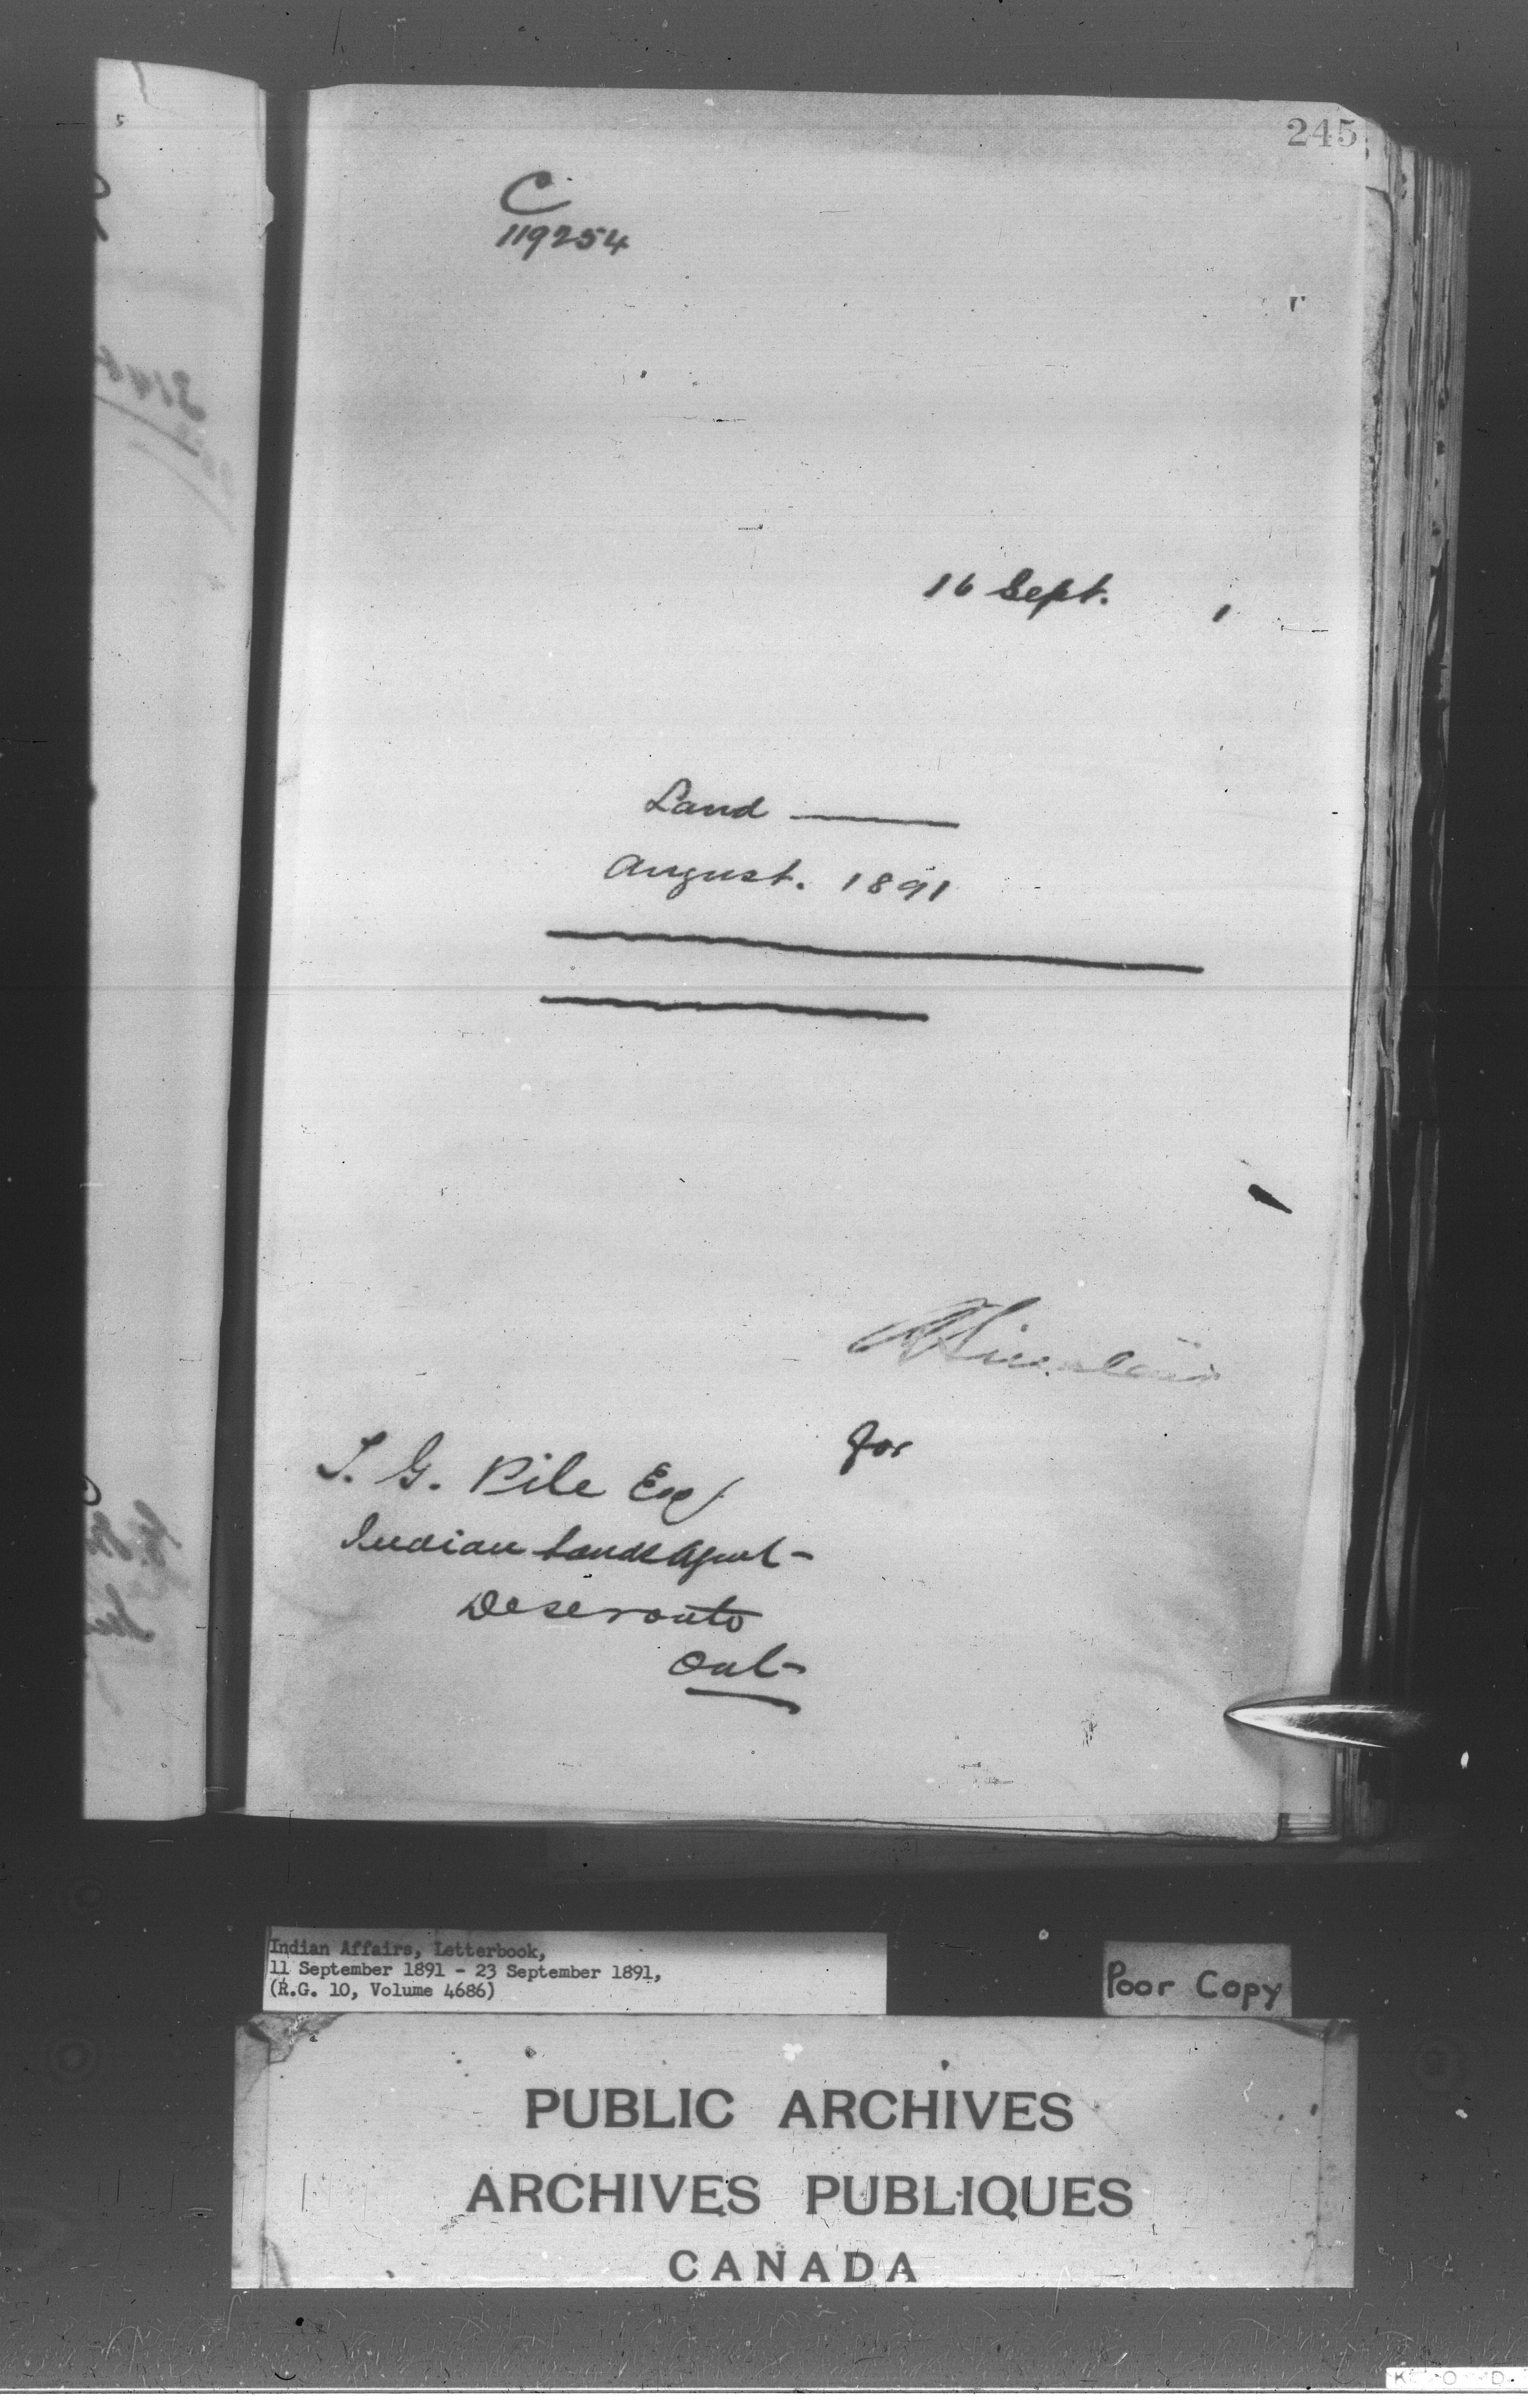 245
C
119254
16 Sept. 1
Land
August. 1891
for
T. G. Pile Esq
Indian Lands Agent-
Deseronto
Ont-
Indian Affairs, Letterbook,
11 September 1891 - 23 September 1891,
(R.G. 10, Volume 4686)
Poor Copy
PUBLIC ARCHIVES
ARCHIVES PUBLIQUES
CANADA